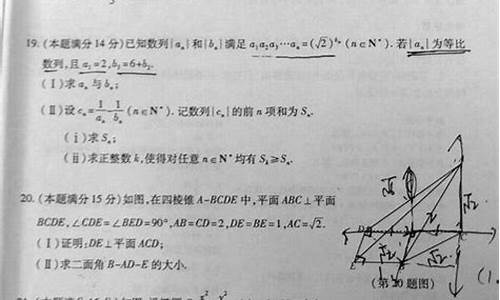 19. (本题满分 14 分)已知数列{aₙ}和{bₙ}满足 a₁a₂a₃…aₙ=(√2)^{bₙ} (n∈N*). 若{aₙ}为等比
数列,且 a₁=2,b₃=6+b₂.
(Ⅰ)求 aₙ 与 bₙ;
(Ⅱ)设 cₙ=1/aₙ-1/bₙ (n∈N*). 记数列{cₙ}的前 n 项和为 Sₙ.
(ⅰ)求 Sₙ;
(ⅱ)求正整数 k,使得对任意 n∈N* 均有 Sₖ≥Sₙ.
20. (本题满分 15 分)如图,在四棱锥 A-BCDE 中,平面 ABC⊥平面
BCDE,∠CDE=∠BED=90°,AB=CD=2,DE=BE=1,AC=√2.
(Ⅰ)证明:DE⊥平面 ACD;
(Ⅱ)求二面角 B-AD-E 的大小.
(第 20 题图)
√2
√2
(1.